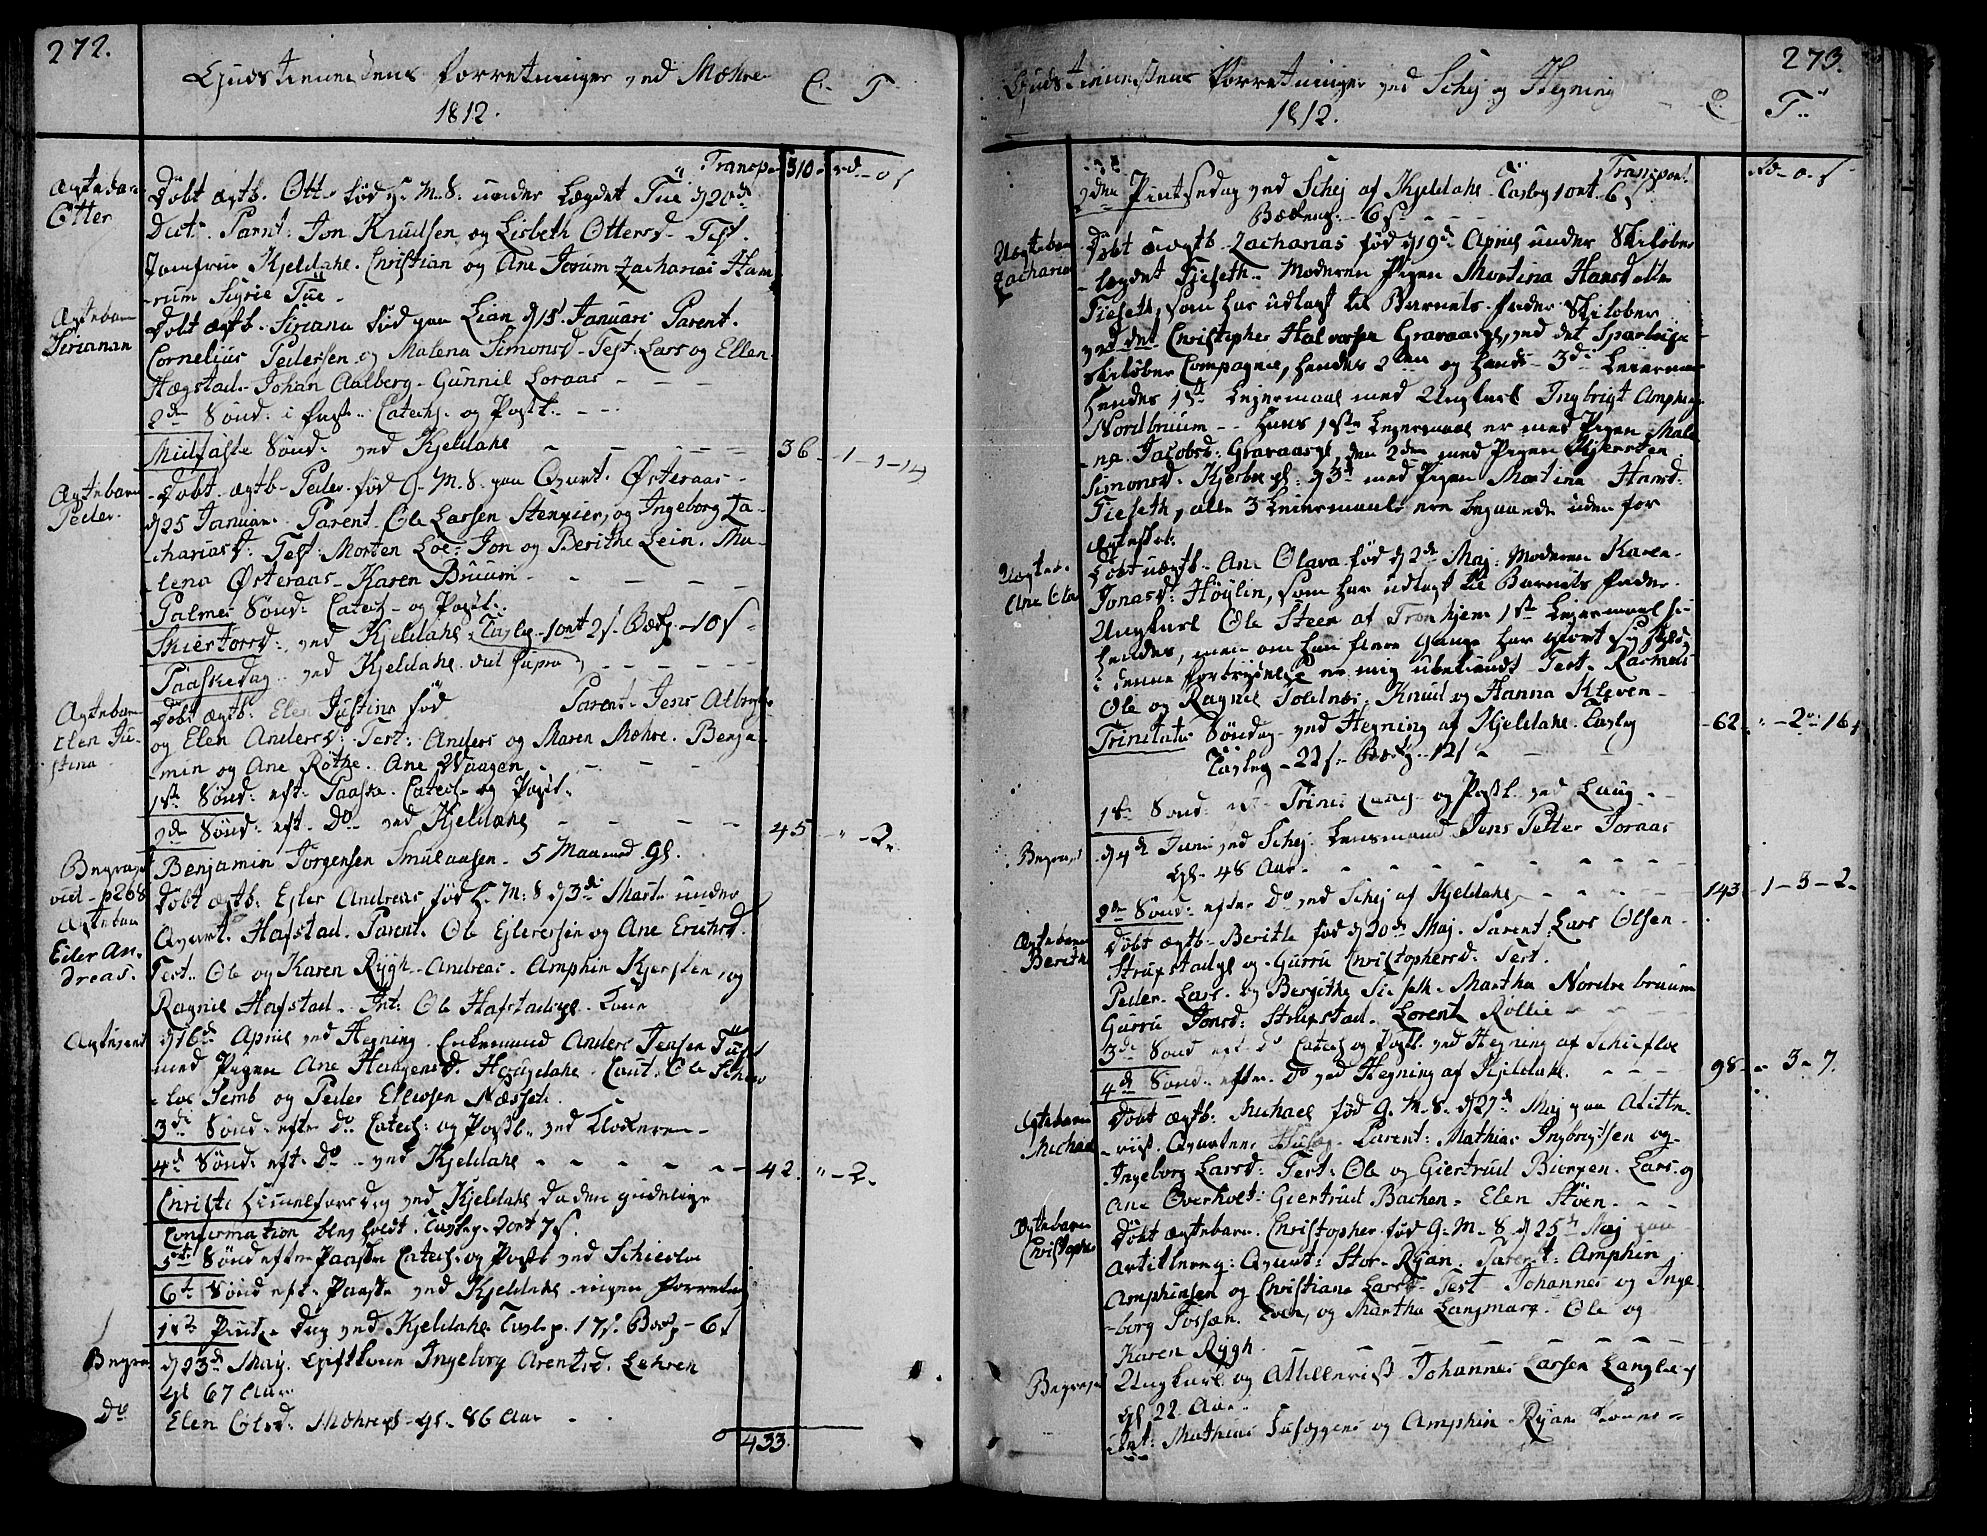 272.
Gudstienestens Forretninger ved Mæhre
1812.
C. T.
Transp. 310.
Ægtebarn Otter
Døbt ægtb. Otter fød h. M. S. under Lægdet Tue d 20de
Dect. Parnt: Jon Knudsen og Lisbeth Ottersd. Test.
Jomfrue Kjeldahl. Christian og Ane Jorum Zacharias Ham
-rum Sigrie Tue.
Ægtebarn Sirianna
Døbt ægtb. Siriana fød paa Lian d 15 Januari Parent.
Cornelius Pedersen og Malena Simonsd. Test: Lars og Ellen
Hægstad. Johan Aalberg. Gunnil Loraas
2de Sønd: i Faste. Catech. og Postl.
Midfaste Sønd: ved Kjeldahl 36 - 1 - 1 - 14
Ægtebarn Peder.
Døbt ægtb. Peder fød G. M. S. paa Qvart. Østeraas
d 25 Januar. Parent. Ole Larsen Stenkier, og Ingeborg Za-
chariasd: Test: Morten Loe. Jon og Berithe Lein. Ma-
lena Østeraas. Karen Bruum
Palme Sønd: Catech. og Postl.
Skiertorsd: ved Kjeldahl Tavleg. 1 ort 2 s. Bæk. 10 s
Paaskedag ved Kjeldahl vid supra
Ægtebarn Elen Justina
Døbt ægtb: Elen Justina fød Parent. Jens Albregts
og Elen Andersd: Test: Anders og Maren Mæhre. Benja-
min og Ane Røthe. Ane Waagen
1ste Sønd: eft: Paaske. Catech. og Postl.
2de Sønd: eft. Do ved Kjeldahl 45 - " - 2.
Begravet vid p 268
Benjamin Jorgensen Smulaasen. 5 Maaned Gl.
Ægtebarn Eiler Andreas.
Døbt ægtb: Eyler Andreas fød h. M. S d 3de Marts under
Qvart. Hafstad. Parent. Ole Eilersen og Ane Erichsd.
Test. Ole og Karen Rygh. Andreas. Amphin Kjersten, og
Ragnil Hafstad. Int: Ole Hafstads Kone
d 16de April ved Hegning. Enkemand Anders Jensen Tüs
med Pigen Ane Haagensd. Hougdahl. Caut. Ole Schier
los Semb og Peder Ellevsen Næsset.
3de Sønd: efter Do Catech: og Postl. ved Klokkeren
4de Sønd: eft. Do ved Kjeldahl 42. " - 2.
Christi Himelfarsdag ved Kjeldahl da den gudelige
Confirmation blev holdt. Tavleg. 2 ort 7 s.
5te Sønd efter Paaske Catech. og Postl ved Schieflo
6te Sønd eft. Paaske ved Kjeldahl ingen Forretn
1ste Pintse Dag ved Kjeldahl Tavlep. 17 s. Bæk. 6 s
Begra
d 23de May. Giftkone Ingeborg Arentsd. Lehren
gl 67 Aar
Do
Elen Olsd. Mæhre gl. 86 Aar
433.
273.
Gudstienestens Forretninger ved Schej og Hegning
1812.
C. T.
Transport.
2den Pintsedag ved Schej af Kjeldahl. Tavleg 1 ort 6 s
Bækkeng. 6 s
Uægtebarn Zacharias
Døbt uægtb. Zacharias fød d 19de April under Skiløber
lægdet Tieseth. Moderen Pigen Martina Hansdatter
Tieseth, som har udlagt til Barnets Fader Skiløber
ved det Christopher Halvorsen Gravaas, ved det Sparboiske
Skiløber Compagnie, hendes 2den og hands 3de Leiermaal
hendes 1ste Lejermaal med Ungkarl Ingbrigt Amphins
Nordbruum -- hans 1ste Lejermaal er med Pigen Male
na Jacobsd: Gravaas, den 2den med Pigen Kjersten
Simonsd. Kjerbre d 3de med Pigen Martina Hansd:
Tieseth, alle 3 Leiermaals ere begaaede uden for
Ægteskab.
Uægteb. Ane Olava
Døbt uægtb. Ane Olava fød d 2de Maj: Moderen Karen
Jonasd: Høylin, som har udlagt til Barnets Fader
Ungkarl Ole Steen af Tronhjem 1ste Lejermaal for
hendes, men om han flere Gange har giort sig skyldig
i denne Forbrydelse er mig ubekiendt. Test. Rasmus
Ole og Ragnil Toldnes, Knud og Hanna Kleven
Trinitatis Søndag ved Hegning af Kjeldahl. Tavleg 62. " - 2 - 16 s
Tavleg 22 s. Bækg. 12 s
1ste Sønd: eft. Trinit. Catech. og Postl. ved Laug
Begravet
d 4de Juni ved Schej. Lensmand Jens Petter Joraas
gl. 48 Aar.
2de Sønd: efter Do ved Schej af Kjeldahl 143. 1 - 3 - 2.
Ægtebarn Berith
Døbt ægtb. Berithe fød d 20de Maj. Parent: Lars Olsen
Strupstad og Gurru Christophersd: Test.
Peder. Lars. og Bergithe Sieseth. Martha Nordre bruum
Gurru Jonsd: Strupstad. Lorentz Rollie
3de Sønd eft. Do Catech og Postl ved Hegning af Schieflo
4de Sønd. efter Do ved Hegning af Kjeldahl. 98 - " 3 - 7.
Ægtebarn Michael
Døbt ægtb. Michael fød G. M. S. d 27de Maj paa Alitte-
rist. Qvarteer Parent: Mathias Ingbrigtsen og
Ingeborg Larsd: Test: Ole og Giertrud Biergen. Lars og
Ane Overholt: Giertrud Bachen. Elen Støen
Ægtebarn Christopher
Døbt ægtebarn. Christopher fød G. M. S. d 25de Maj paa
Artillerieq: Qvart: Stor-Ryan. Parent: Amphin
Amphinsen og Christiane Larsd. Test Johannes og Inge
borg Fossan. Even, og Martha Langmarq. Ole og
Karen Rygh.
Begravet
Ungkarl og Atillerist Johannes Larsen Langlie
gl 22 Aar.
Int: Mathias og Amphin Ryan